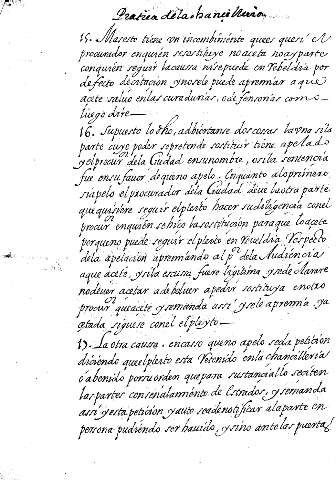 Practica de la chancilleria
15. Mas esto tiene un incombiniente que es que si el
procurador en quien se sostituyo no aceta no ay parte
con quien seguir la causa ni se puede en Rebeldia por
defeto de citacion, y no sele puede apremiar a que
acete salvo en las curadurias, o defensorias como
luego dire
16. Supuesto lo dho, adbiertanse dos cosas la una si la
parte cuyo poder se pretende sostituir tiene apelado
y el procur de la Ciudad en su nombre, o si la sentencia
fue en su favor de que no apelo. En quanto a lo primero
si apelo el procurador de la Ciudad deve la otra parte
que quisiere seguir el pleito hacer su deligencia con el
procur en quien se hico la sostitucion para que lo acete
porque no puede seguir el pleito en Reveldia Respecto
de la apelacion apremiando al pr de la Audiencia
a que acete, y si la escusa fuere legitima y se declarare
no dever acetar a de bolver a pedir sostituya en otro
procur que acete y se manda assi y sele apremia ya
çetada sigue se con el el pleyto
17. La otra causa. en caso que no apelo se da peticion
diciendo que el pleito esta Retenido en la chancilleria
o a benido por su orden que para sustanciallo se citen
las partes con señalamiento de Estrados, y se manda
assi y esta peticion y auto se a de notificar a la parte en
persona pudiendo ser havido, y sino ante las puertas